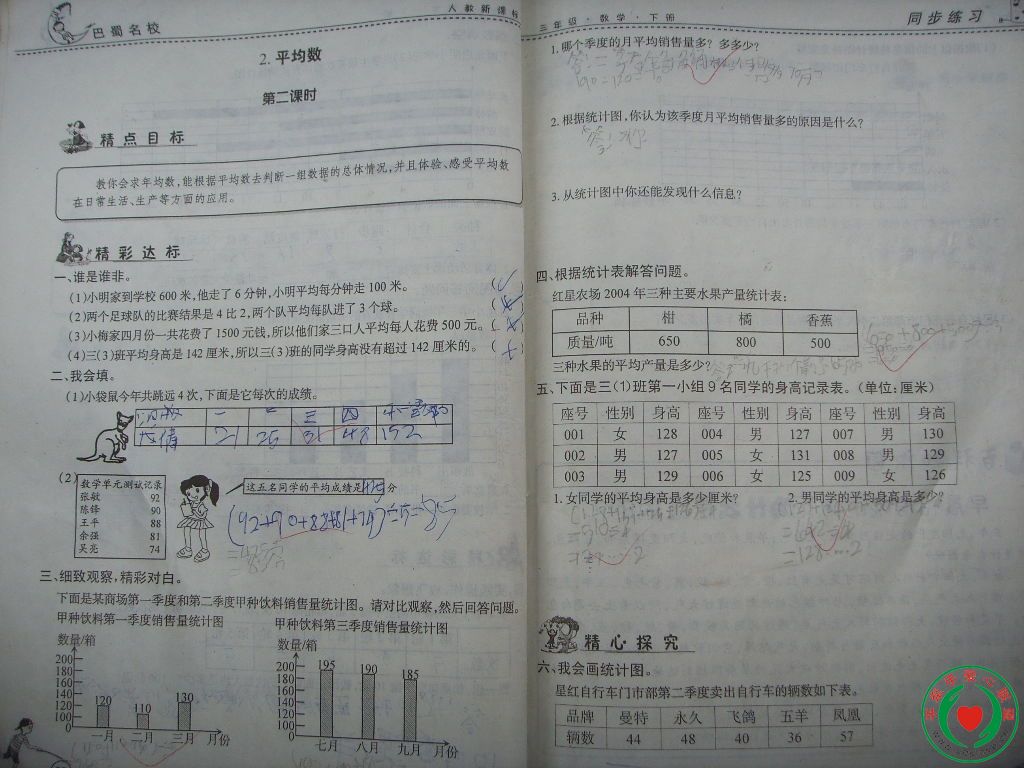 巴蜀名校
人教新课标
2. 平均数
第二课时
精点目标
教你会求年均数,能根据平均数去判断一组数据的总体情况,并且体验、感受平均数
在日常生活、生产等方面的应用。
精彩达标
一、谁是谁非。
(1)小明家到学校 600 米,他走了 6 分钟,小明平均每分钟走 100 米。 (✓)
(2)两个足球队的比赛结果是 4 比 2,两个队平均每队进了 3 个球。 ( )
(3)小梅家四月份一共花费了 1500 元钱,所以他们家三口人平均每人花费 500 元。 ( )
(4)三(3)班平均身高是 142 厘米,所以三(3)班的同学身高没有超过 142 厘米的。 ( )
二、我会填。
(1)小袋鼠今年共跳远 4 次,下面是它每次的成绩。
一 二 三 四
21 25 48 152
(2)
数学单元测试记录
张敏 92
陈锋 90
王平 88
余强 81
吴亮 74
这五名同学的平均成绩是 分
三、细致观察,精彩对白。
下面是某商场第一季度和第二季度甲种饮料销售量统计图。请对比观察,然后回答问题。
甲种饮料第一季度销售量统计图
数量/箱
200
180
160
140
120
100
0
120
110
130
一月 二月 三月 月份
甲种饮料第三季度销售量统计图
数量/箱
200
180
160
140
120
100
0
195
190
185
七月 八月 九月 月份
三年级·数学·下册
同步练习
1. 哪个季度的月平均销售量多? 多多少?
2. 根据统计图,你认为该季度月平均销售量多的原因是什么?
3. 从统计图中你还能发现什么信息?
四、根据统计表解答问题。
红星农场 2004 年三种主要水果产量统计表:
品种 柑 橘 香蕉
质量/吨 650 800 500
三种水果的平均产量是多少?
五、下面是三(1)班第一小组 9 名同学的身高记录表。(单位:厘米)
座号 性别 身高 座号 性别 身高 座号 性别 身高
001 女 128 004 男 127 007 男 130
002 男 127 005 女 131 008 男 129
003 男 129 006 女 125 009 女 126
1. 女同学的平均身高是多少厘米? 2. 男同学的平均身高是多少?
精心探究
六、我会画统计图。
星红自行车门市部第二季度卖出自行车的辆数如下表。
品牌 曼特 永久 飞鸽 五羊 凤凰
辆数 44 48 40 36 57